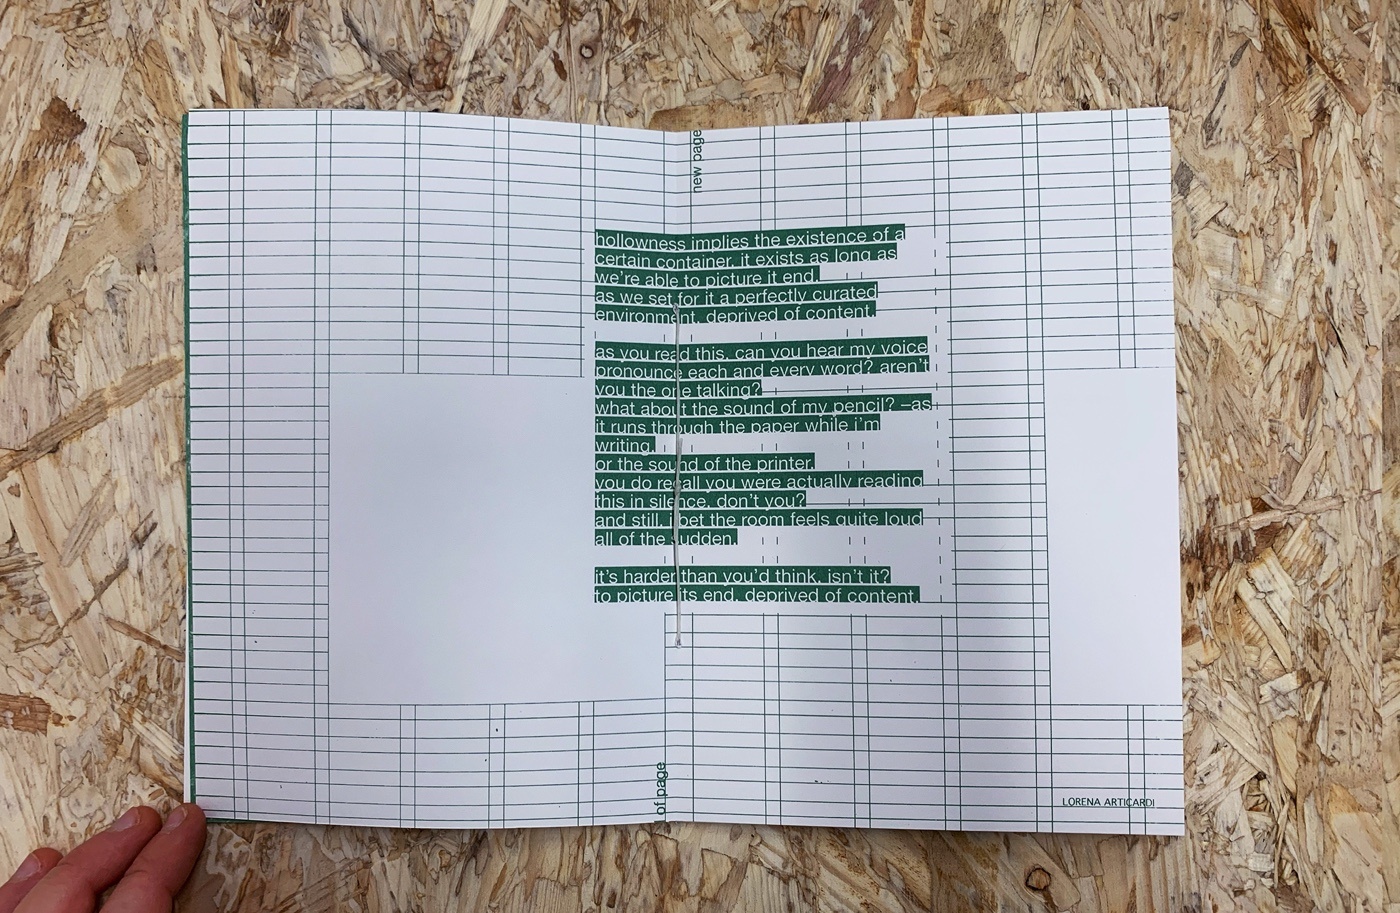 new page
hollowness implies the existence of a
certain container. it exists as long as
we're able to picture it end.
as we set for it a perfectly curated
environment, deprived of content.
as you read this, can you hear my voice
pronounce each and every word? aren't
you the one talking?
what about the sound of my pencil? –as
it runs through the paper while i'm
writing.
or the sound of the printer.
you do recall you were actually reading
this in silence, don't you?
and still, i bet the room feels quite loud
all of the sudden.
it's harder than you'd think, isn't it?
to picture its end, deprived of content.
of page
LORENA ARTICARDI